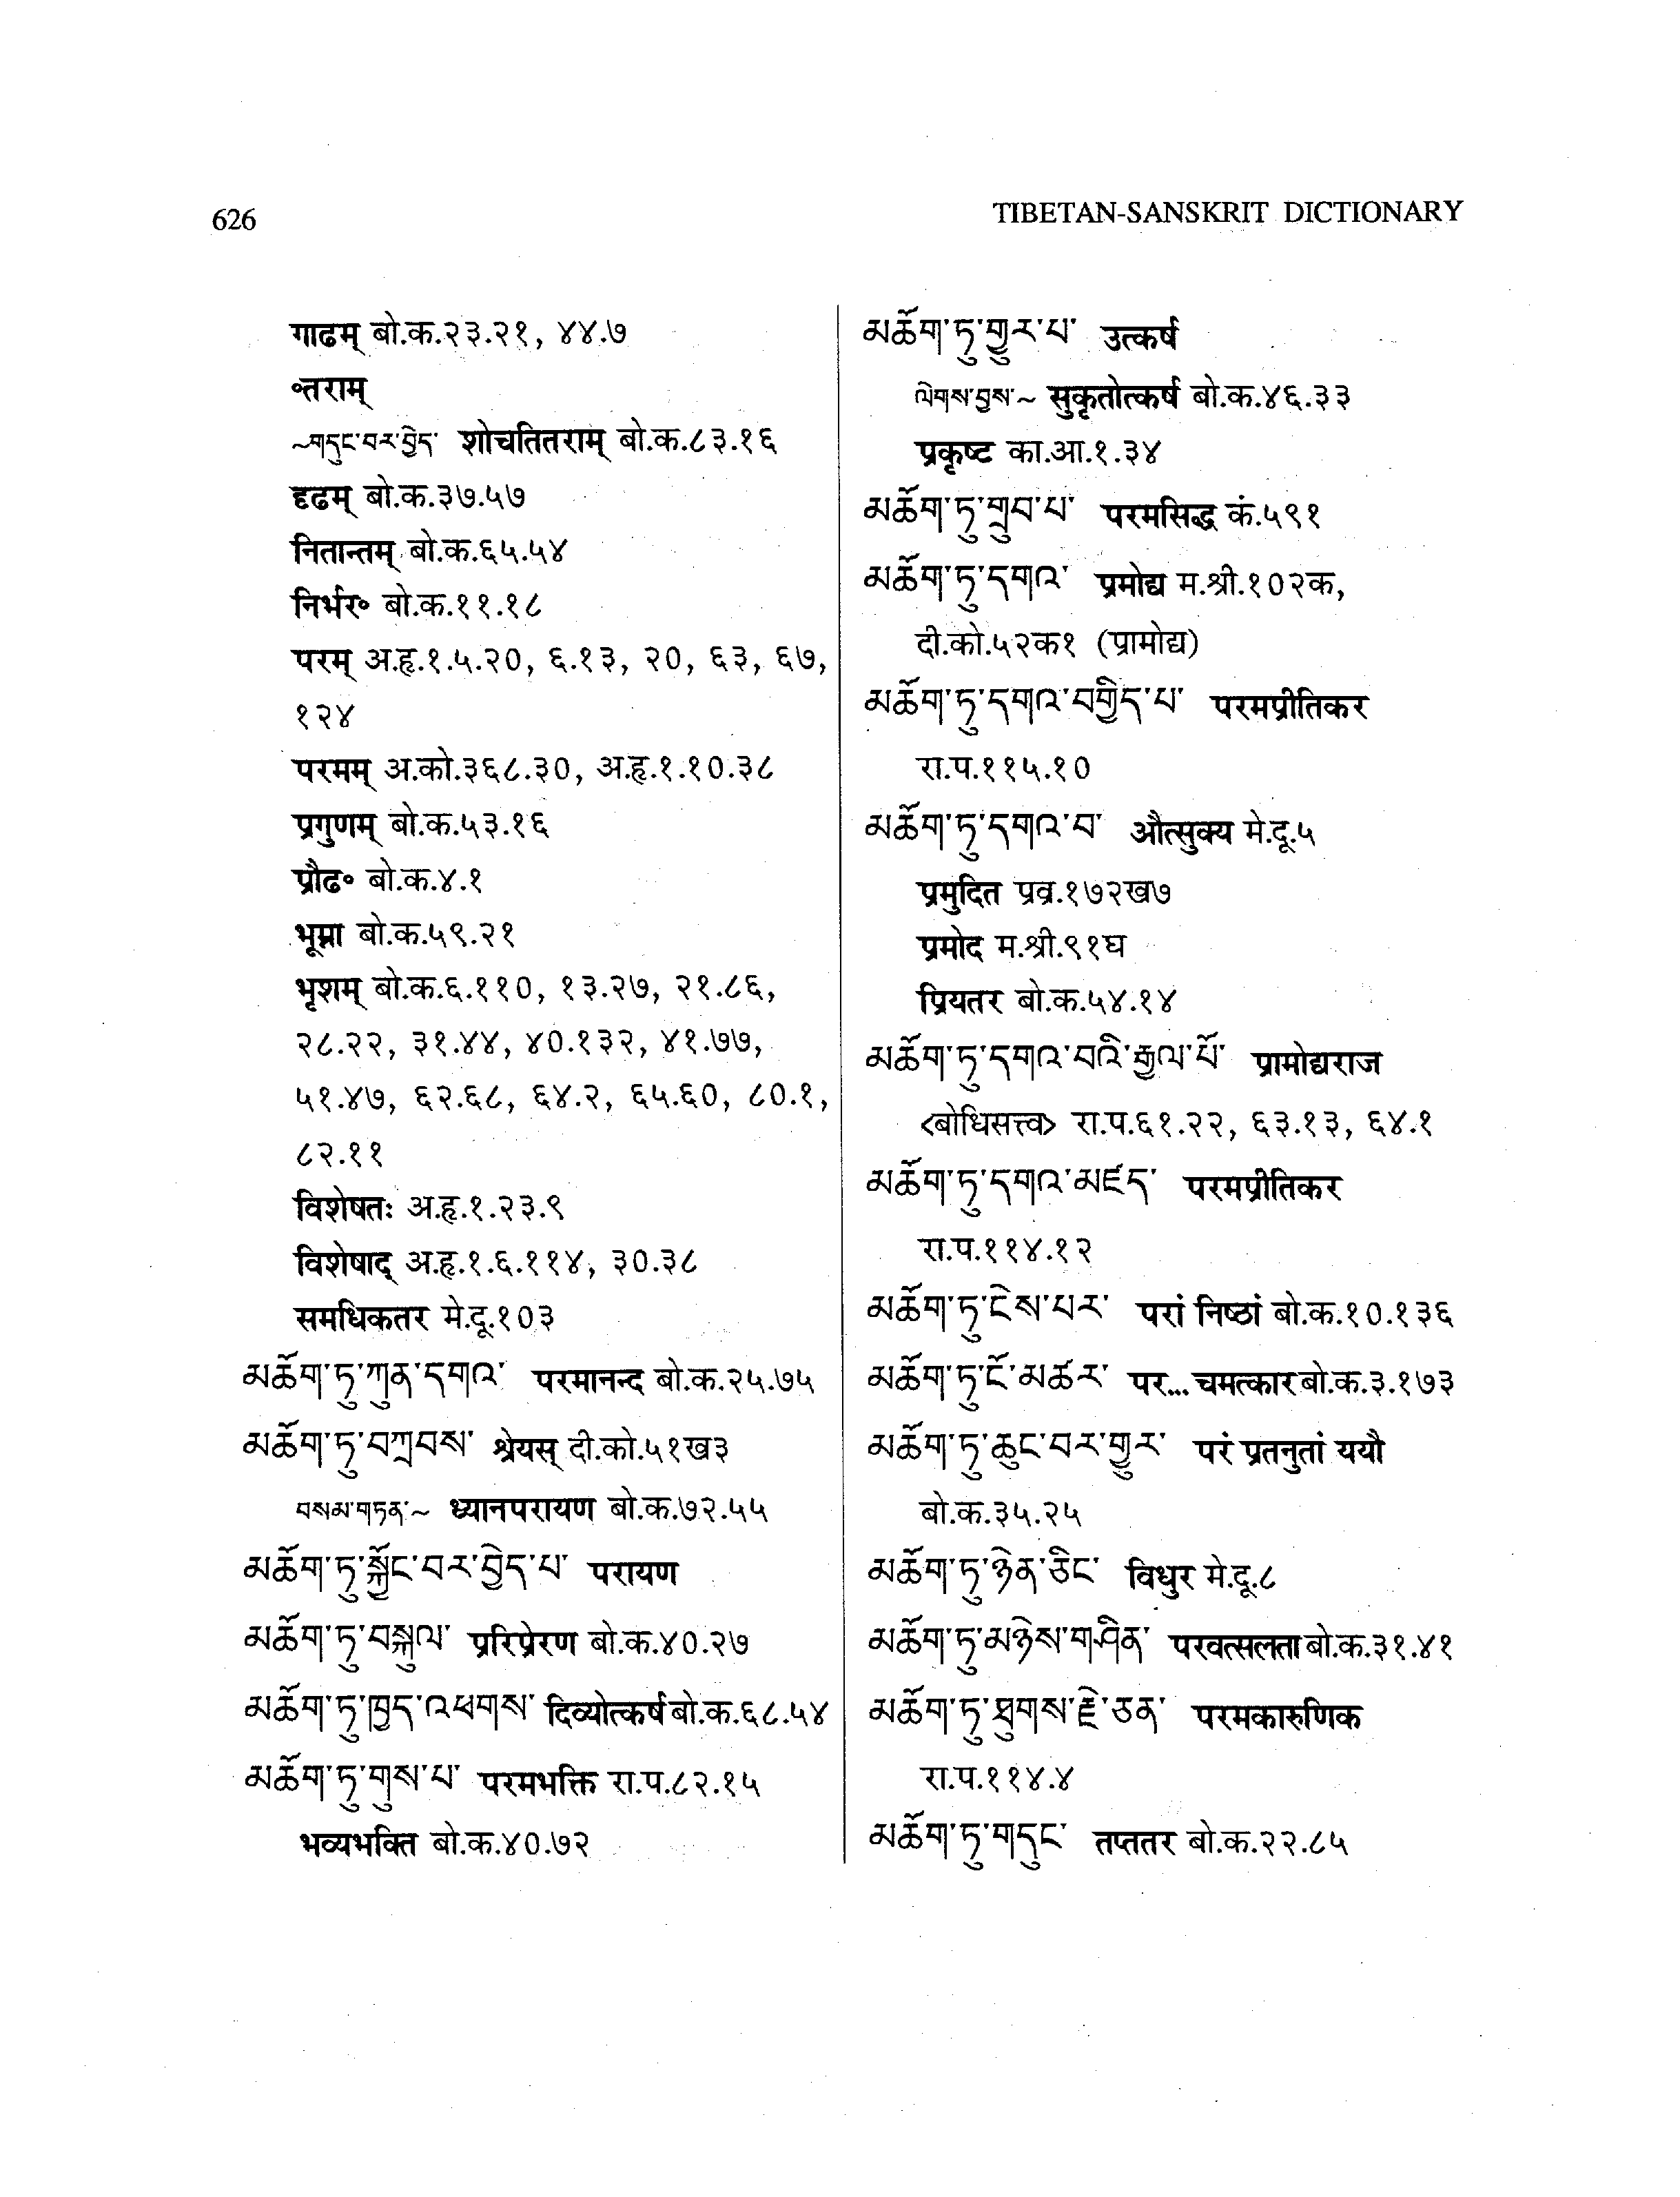 626
TIBETAN-SANSKRIT DICTIONARY
गाढम् बो.क.२३.२१, ४४.७
॰तराम्
~གདུང་བར་བྱེད་ शोचतितराम् बो.क.८३.१६
दृढम् बो.क.३७.५७
नितान्तम् बो.क.६५.५४
निर्भर॰ बो.क.११.१८
परम् अ.हृ.१.५.२०, ६.१३, २०, ६३, ६७,
१२४
परमम् अ.को.३६८.३०, अ.हृ.१.१०.३८
प्रगुणम् बो.क.५३.१६
प्रौढ॰ बो.क.४.१
भूम्ना बो.क.५९.२१
भृशम् बो.क.६.११०, १३.२७, २१.८६,
२८.२२, ३१.४४, ४०.१३२, ४१.७७,
५१.४७, ६२.६८, ६४.२, ६५.६०, ८०.१,
८२.११
विशेषतः अ.हृ.१.२३.९
विशेषाद् अ.हृ.१.६.११४, ३०.३८
समधिकतर मे.दू.१०३
མཆོག་ཏུ་ཀུན་དགའ་ परमानन्द बो.क.२५.७५
མཆོག་ཏུ་བཀྲབས་ श्रेयस् दी.को.५१ख३
བསམ་གཏན་~ ध्यानपरायण बो.क.७२.५५
མཆོག་ཏུ་སྐྱོང་བར་བྱེད་པ་ परायण
མཆོག་ཏུ་བསྐུལ་ प्ररिप्रेरण बो.क.४०.२७
མཆོག་ཏུ་ཁྱད་འཕགས་ दिव्योत्कर्ष बो.क.६८.५४
མཆོག་ཏུ་གུས་པ་ परमभक्ति रा.प.८२.१५
भव्यभक्ति बो.क.४०.७२
མཆོག་ཏུ་གྱུར་པ་ उत्कर्ष
ལེགས་བྱས་~ सुकृतोत्कर्ष बो.क.४६.३३
प्रकृष्ट का.आ.१.३४
མཆོག་ཏུ་གྲུབ་པ་ परमसिद्ध कं.५९१
མཆོག་ཏུ་དགའ་ प्रमोद्य म.श्री.१०२क,
दी.को.५२क१ (प्रामोद्य)
མཆོག་ཏུ་དགའ་བགྱིད་པ་ परमप्रीतिकर
रा.प.११५.१०
མཆོག་ཏུ་དགའ་བ་ औत्सुक्य मे.दू.५
प्रमुदित प्रव्र.१७२ख७
प्रमोद म.श्री.९१घ
प्रियतर बो.क.५४.१४
མཆོག་ཏུ་དགའ་བའི་རྒྱལ་པོ་ प्रामोद्यराज
<बोधिसत्त्व> रा.प.६१.२२, ६३.१३, ६४.१
མཆོག་ཏུ་དགའ་མཛད་ परमप्रीतिकर
रा.प.११४.१२
མཆོག་ཏུ་ངེས་པར་ परां निष्ठां बो.क.१०.१३६
མཆོག་ཏུ་ངོ་མཚར་ पर... चमत्कार बो.क.३.१७३
མཆོག་ཏུ་ཆུང་བར་གྱུར་ परं प्रतनुतां ययौ
बो.क.३५.२५
མཆོག་ཏུ་ཉེན་ཅིང་ विधुर मे.दू.८
མཆོག་ཏུ་མཉེས་གཤིན་ परवत्सलता बो.क.३१.४१
མཆོག་ཏུ་ཐུགས་རྗེ་ཅན་ परमकारुणिक
रा.प.११४.४
མཆོག་ཏུ་གདུང་ तप्ततर बो.क.२२.८५